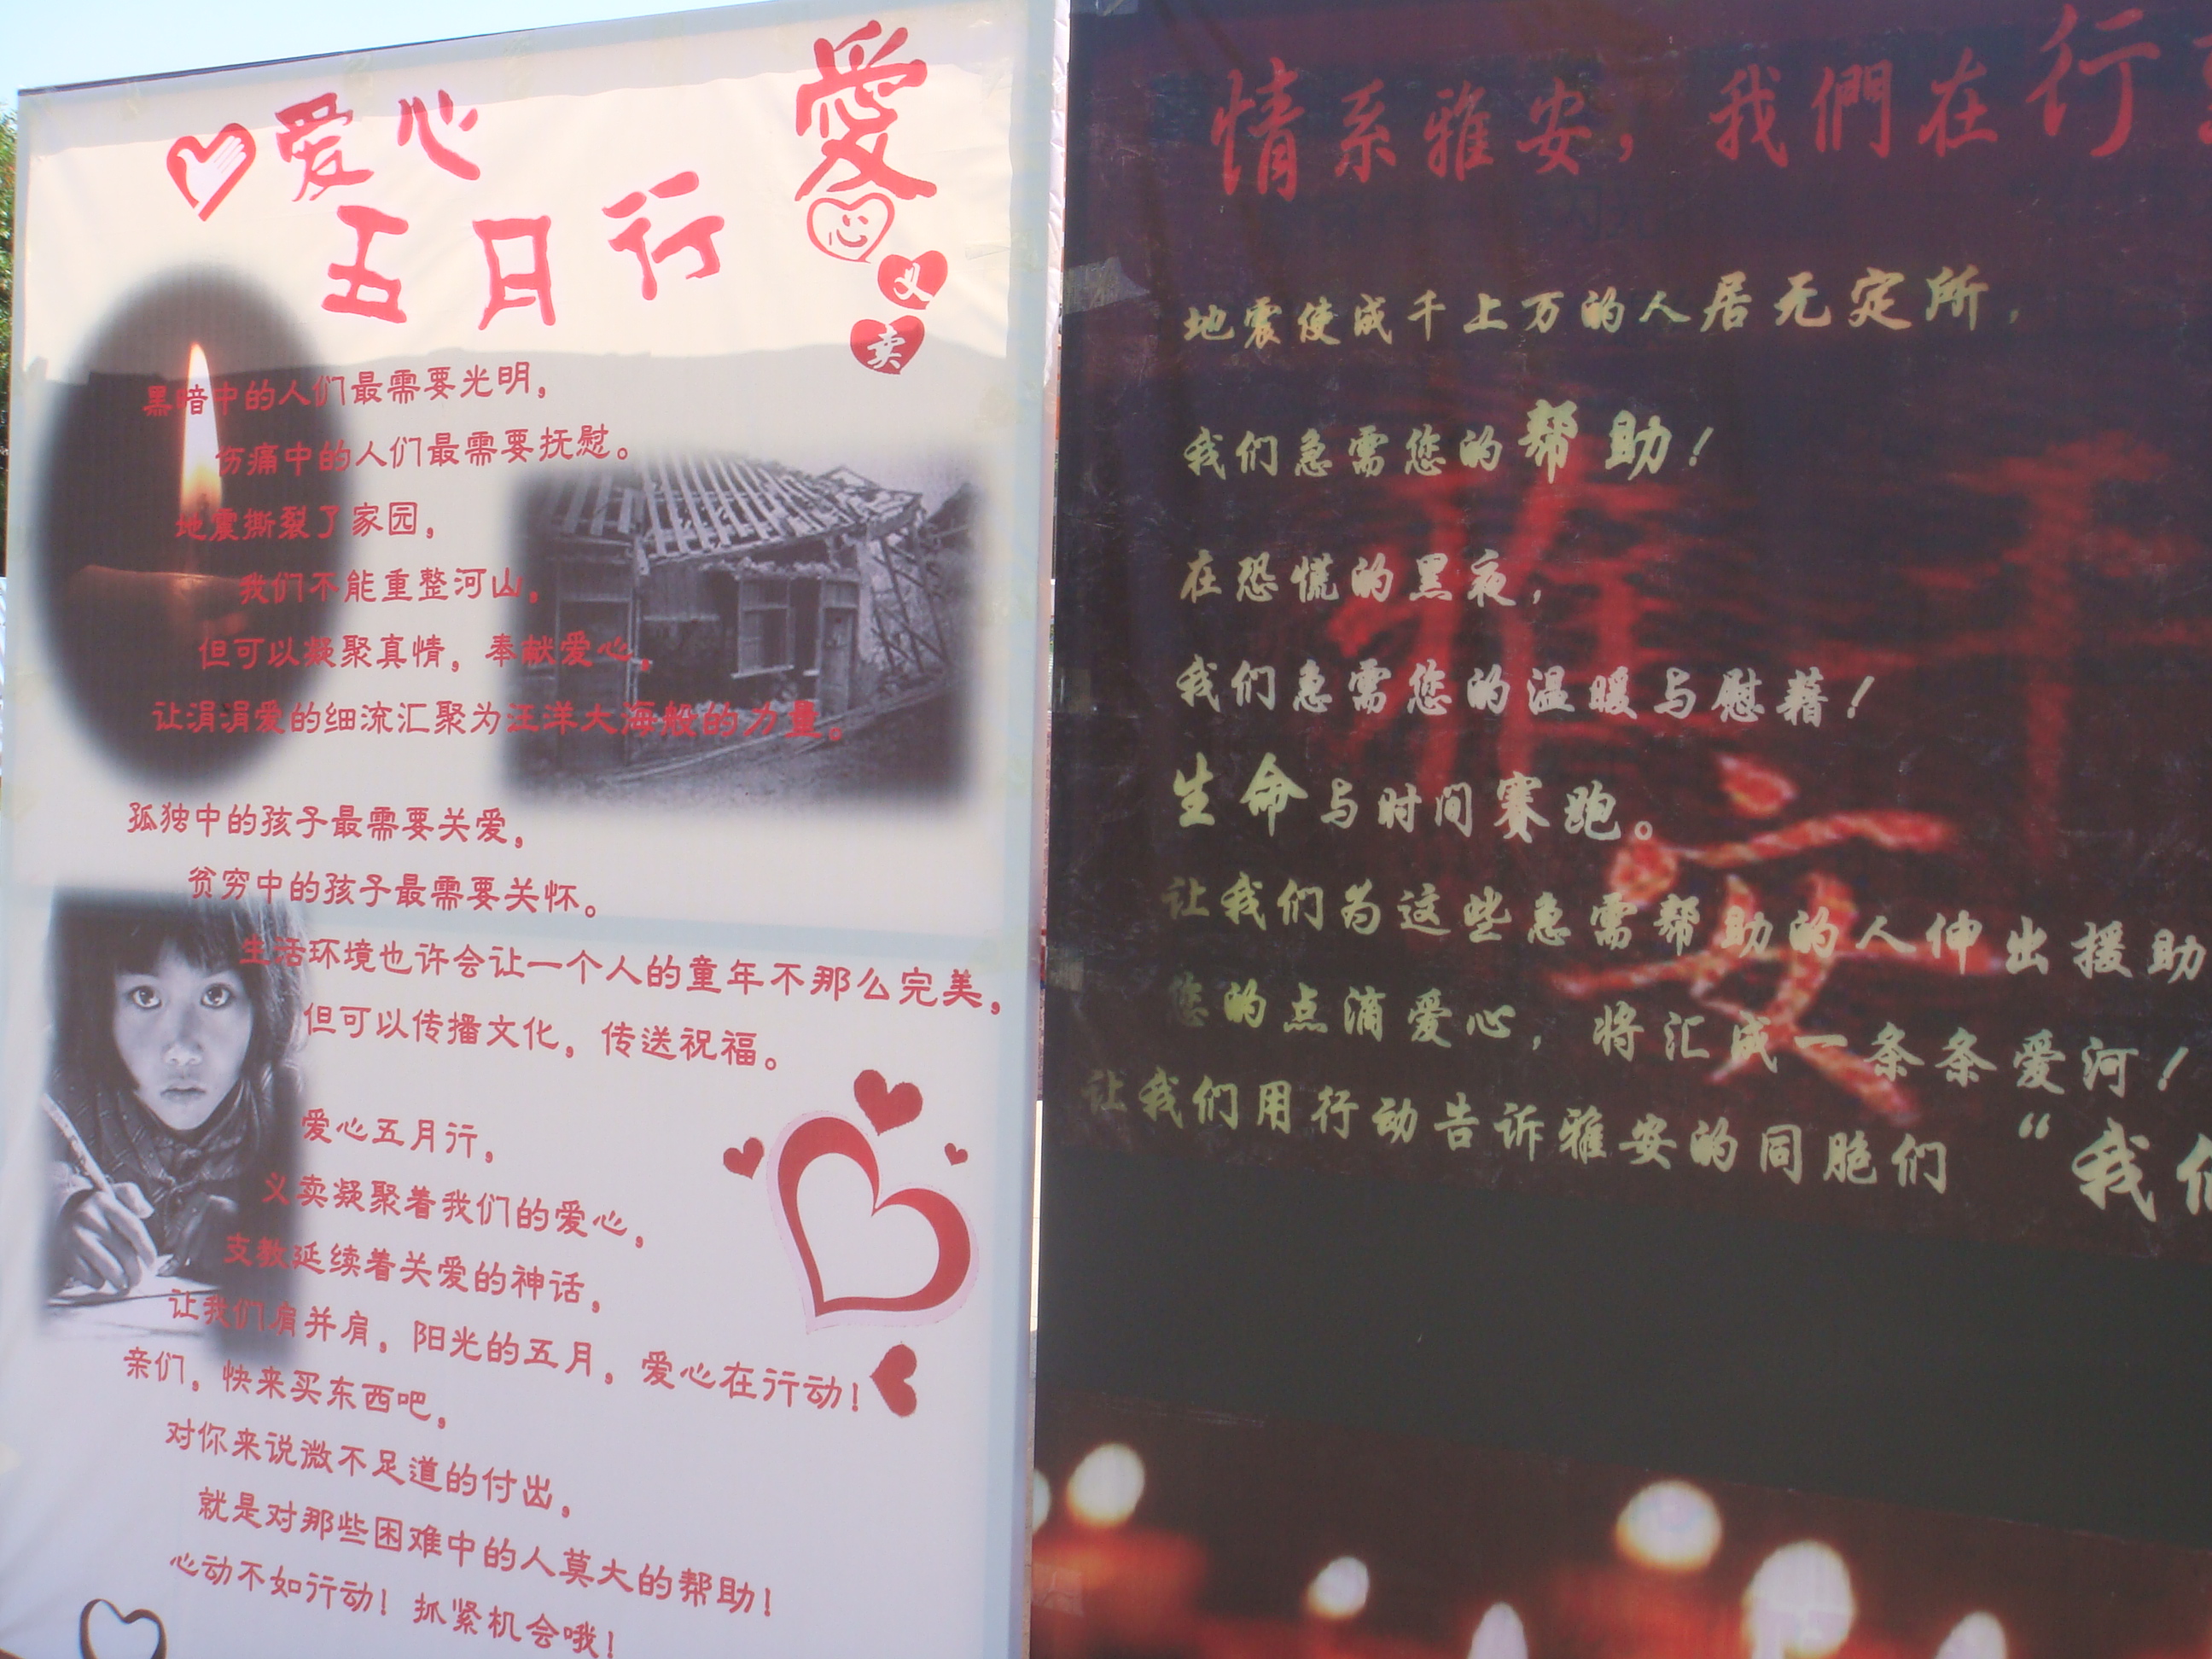 爱心
五月行
愛
义
卖
黑暗中的人们最需要光明，
伤痛中的人们最需要抚慰。
地震撕裂了家园，
我们不能重整河山，
但可以凝聚真情，奉献爱心，
让涓涓爱的细流汇聚为汪洋大海般的力量。
孤独中的孩子最需要关爱，
贫穷中的孩子最需要关怀。
生活环境也许会让一个人的童年不那么完美，
但可以传播文化，传送祝福。
爱心五月行，
义卖凝聚着我们的爱心，
支教延续着关爱的神话，
让我们肩并肩，阳光的五月，爱心在行动！
亲们，快来买东西吧，
对你来说微不足道的付出，
就是对那些困难中的人莫大的帮助！
心动不如行动！抓紧机会哦！
情系雅安，我們在行
地震使成千上万的人居无定所，
我们急需您的帮助！
在恐慌的黑夜，
我们急需您的温暖与慰藉！
生命与时间赛跑。
让我们为这些急需帮助的人伸出援助
您的点滴爱心，将汇成一条条爱河！
让我们用行动告诉雅安的同胞们 “我们
雅
安